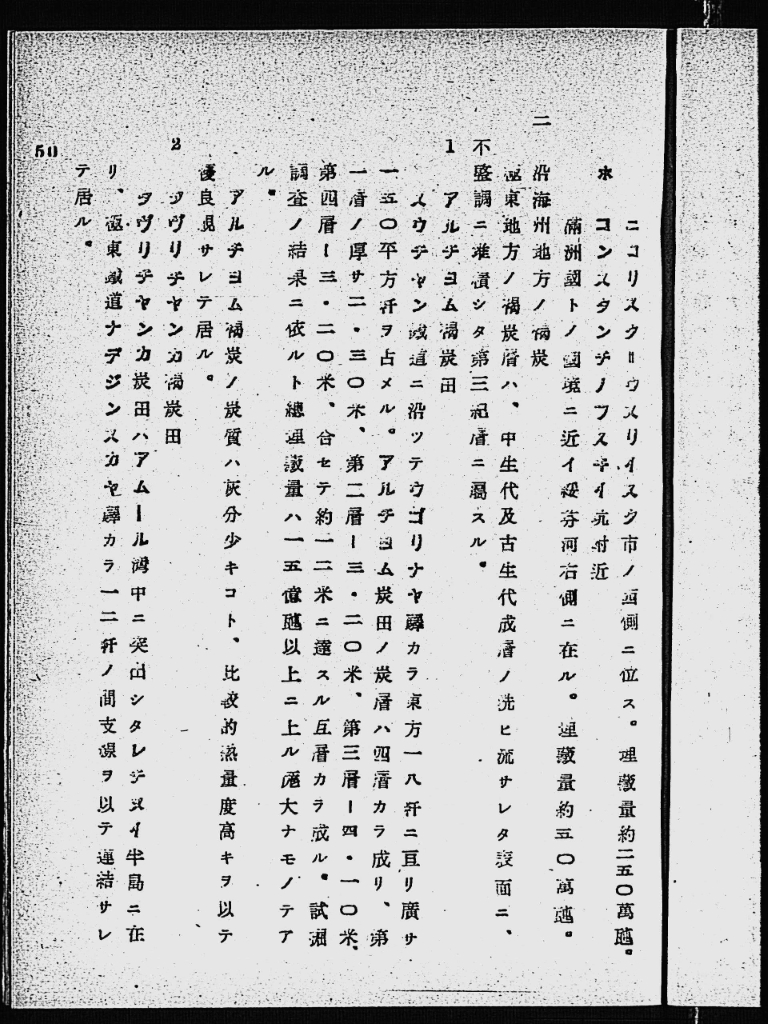 ニコリスク=ウスリイスク市ノ西側ニ位ス。埋藏量約二五〇萬瓲。
ホ コンスタンチノフスキイ坑附近
滿洲國トノ國境ニ近イ綏芬河右側ニ在ル。埋藏量約五〇萬瓲。
二 沿海州地方ノ褐炭
極東地方ノ褐炭層ハ、中生代及古生代成層ノ洗ヒ流サレタ表面ニ、
不整調ニ堆積シタ第三紀層ニ屬スル。
1 アルチヨム褐炭田
スウチヤン鐵道ニ沿ツテウゴリナヤ驛カラ東方一八粁ニ亘リ廣サ
一五〇平方粁ヲ占メル。アルチヨム炭田ノ炭層ハ四層カラ成リ、第
一層ノ厚サ二・三〇米、第二層ー三・二〇米、第三層ー四・一〇米、
第四層ー三・二〇米、合セテ約一二米ニ達スル互層カラ成ル。試掘
調査ノ結果ニ依ルト總埋藏量ハ一五億瓲以上ニ上ル尨大ナモノデア
ル。
アルチヨム褐炭ノ炭質ハ灰分少キコト、比較的熱量度高キヲ以テ
優良視サレテ居ル。
2 タヴリチヤンカ褐炭田
タヴリチヤンカ炭田ハアムール灣中ニ突出シタレチヌイ半島ニ在
リ、極東鐵道ナデジンスカヤ驛カラ一二粁ノ間支線ヲ以テ連結サレ
テ居ル。
50